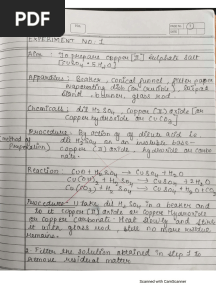 PDF
EXPERIMENT NO. 1
Aim - To prepare copper [II] sulphate salt
[CuSO4 • 5H2O]
Apparatus - Beaker, conical funnel, filter paper
evaporating dish (or crucible), tripod
stand, burner, glass rod
Chemicals: dil H2SO4, copper (II) oxide [or
Copper hydroxide or CuCO3]
Procedure - By action of dilute acid i.e.
dil H2SO4 on an insoluble base -
copper (II) oxide, hydroxide or
Method of
Preparation
Reaction CuO + H2SO4 → CuSO4 + H2O
Cu(OH)2 + H2SO4 → CuSO4 + 2H2O
CuCO3 + H2SO4 → CuSO4 + H2O + CO2
Procedure - 1. Take dil H2SO4 in a beaker and
to it copper (II) oxide or Copper Hydroxide
or copper carbonate. Heat gently and stir
it with glass rod, till no more
remains.
2. Filter the solution obtained in step 1 to
remove residual matter.
Scanned with CamScanner